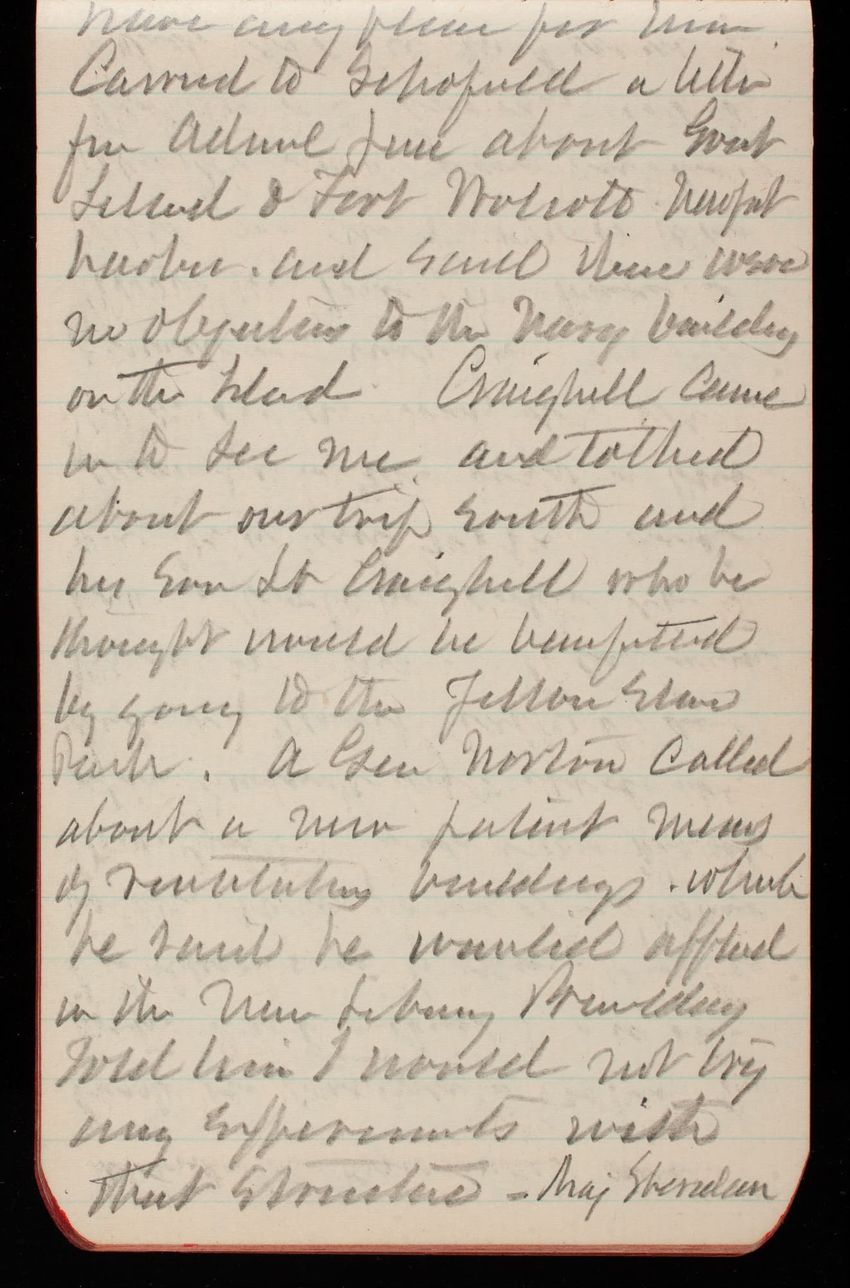 have any place for him.
Carried to Schofield a letter
from Admiral June about Goat
Island & Fort Wolcott Newport
harbor. and said there were
no objections to the Navy building
on the Island Craighill came
in to see me and talked
about our trip South and
his Son Lt Craighill who he
thought would be benefitted
by going to the Yellow Stone
Park. A Gen Norton called
about a new patent means
of ventilating buildings. which
he said he wanted applied
in the New Library Building
Told him I would not try
any experiments with
that Structure - Maj Sheridan